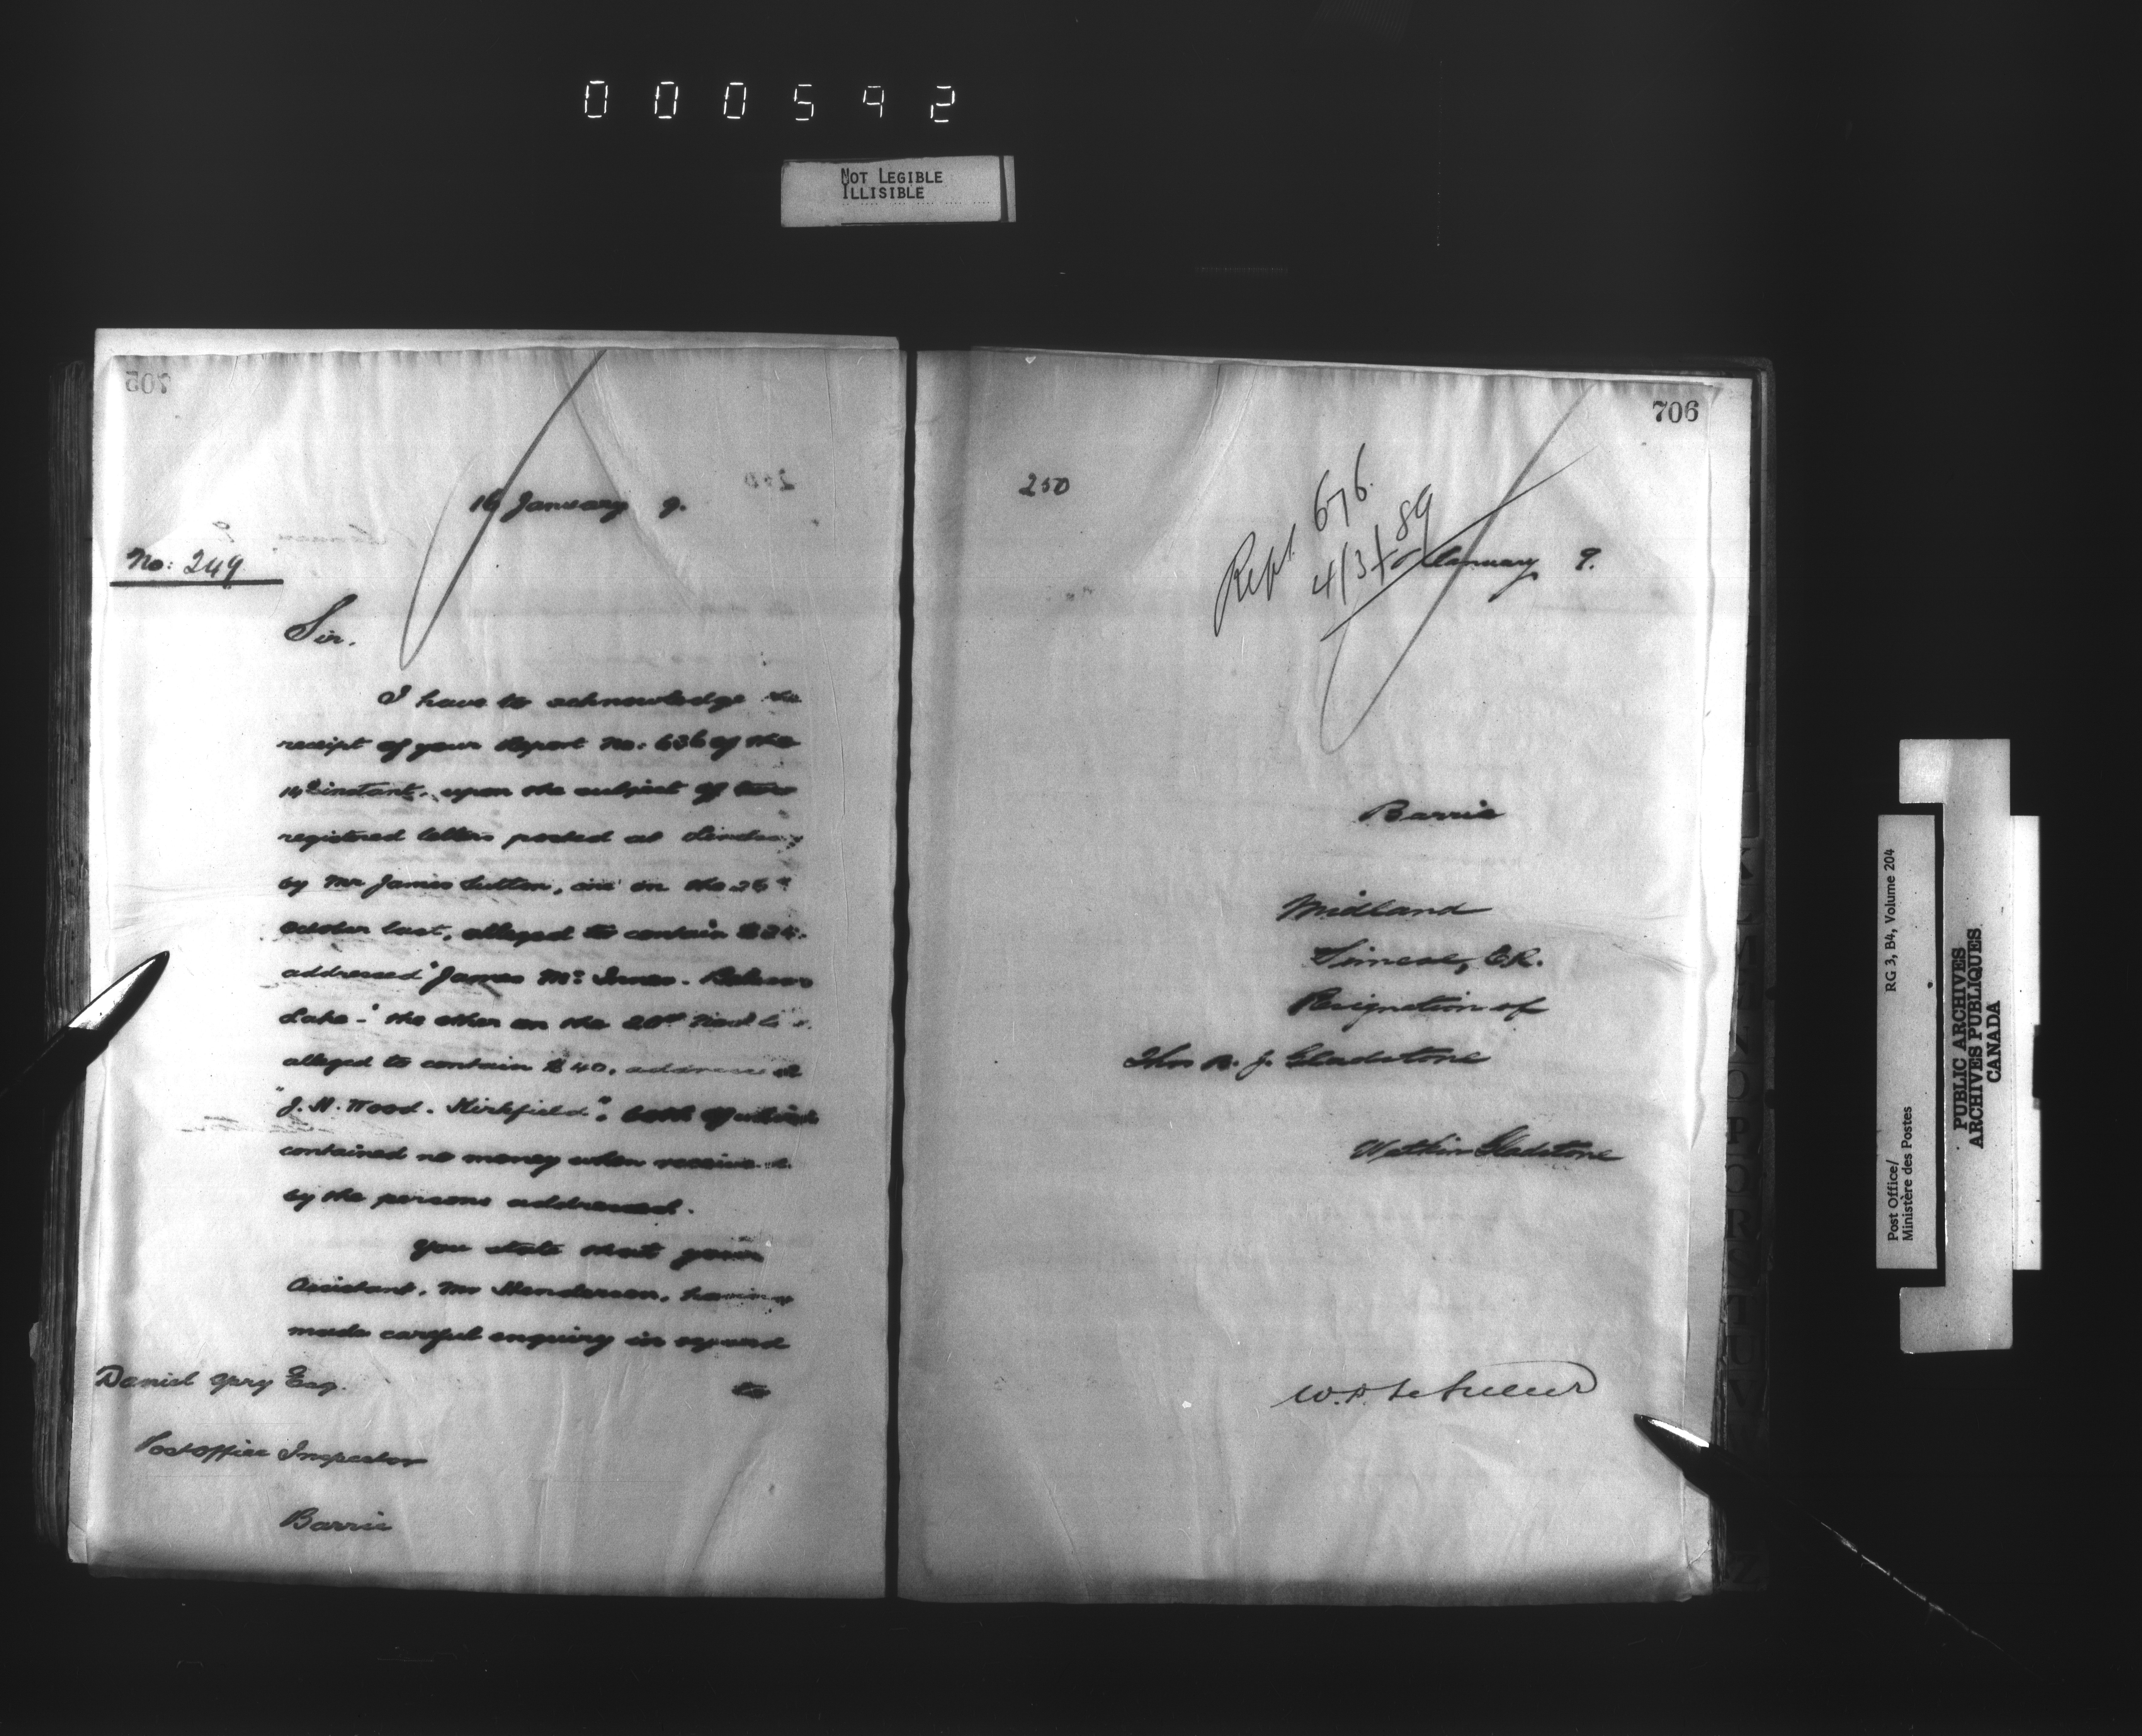 000592
NOT LEGIBLE
ILLISIBLE
705
16 January 9.
No: 249
Sir.
I have to acknowledge the
receipt of your Report No: 636 of the
14th instant, upon the subject of two
registered letters posted at Lindsay
by Mr James Sutton, one on the
October last, alleged to contain
addressed "James Mc Innes.
Lake-" the other on the
alleged to contain $40, addressed
"J. H. Wood. Kirkfield", both of which
contained no money when received
by the persons addressed.
You state that your
Assistant, Mr Henderson, having
made careful enquiry in regard
to
Daniel Spry Esq.
Post Office Inspector
Barrie
706
250
Rept. 676.
4/3/89
January 9.
Barrie
Midland
Simcoe, E.R.
Resignation of
Thos B. J. Gladstone
Gladstone
Post Office/
Ministère des Postes
RG 3, B4, Volume 204
PUBLIC ARCHIVES
ARCHIVES PUBLIQUES
CANADA